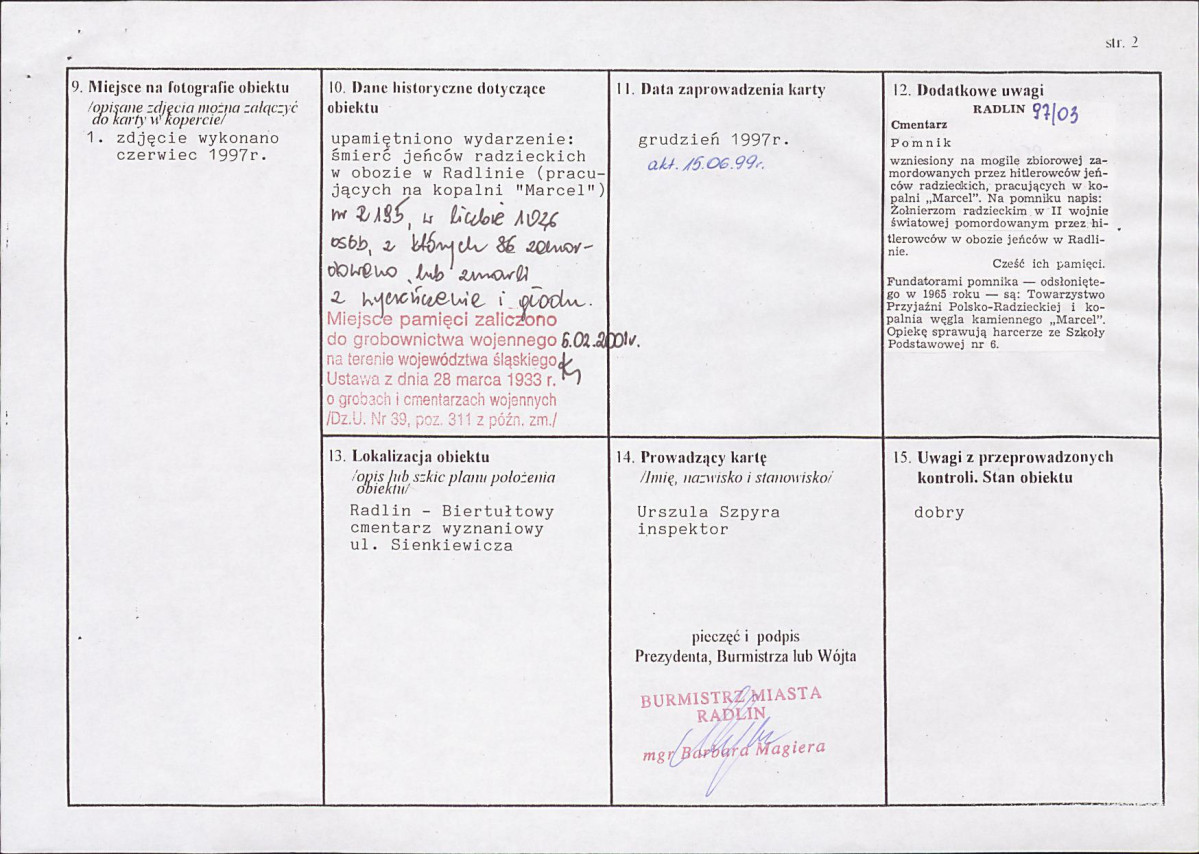 str. 2
9. Miejsce na fotografie obiektu
/opisane zdjęcia można załączyć
do karty w kopercie/
1. zdjęcie wykonano
czerwiec 1997r.
10. Dane historyczne dotyczące
obiektu
upamiętniono wydarzenie:
śmierć jeńców radzieckich
w obozie w Radlinie (pracu-
jących na kopalni "Marcel")
nr 2195, w liczbie 1026
osób, z których 86 zamor-
dowano lub zmarli
z wycieńczenia i głodu.
Miejsce pamięci zaliczono
do grobownictwa wojennego 6.02.2001r.
na terenie województwa śląskiego
Ustawa z dnia 28 marca 1933 r.
o grobach i cmentarzach wojennych
/Dz.U. Nr 39, poz. 311 z późn. zm./
11. Data zaprowadzenia karty
grudzień 1997r.
akt. 15.06.99r.
12. Dodatkowe uwagi
RADLIN 97/03
Cmentarz
Pomnik
wzniesiony na mogile zbiorowej za-
mordowanych przez hitlerowców jeń-
ców radzieckich, pracujących w ko-
palni „Marcel”. Na pomniku napis:
Żołnierzom radzieckim w II wojnie
światowej pomordowanym przez hi-
tlerowców w obozie jeńców w Radli-
nie.
Cześć ich pamięci.
Fundatorami pomnika — odsłonięte-
go w 1965 roku — są: Towarzystwo
Przyjaźni Polsko-Radzieckiej i ko-
palnia węgla kamiennego „Marcel”.
Opiekę sprawują harcerze ze Szkoły
Podstawowej nr 6.
13. Lokalizacja obiektu
/opis lub szkic planu położenia
obiektu/
Radlin - Biertułtowy
cmentarz wyznaniowy
ul. Sienkiewicza
14. Prowadzący kartę
/Imię, nazwisko i stanowisko/
Urszula Szpyra
inspektor
pieczęć i podpis
Prezydenta, Burmistrza lub Wójta
BURMISTRZ MIASTA
RADLIN
mgr Barbara Magiera
15. Uwagi z przeprowadzonych
kontroli. Stan obiektu
dobry